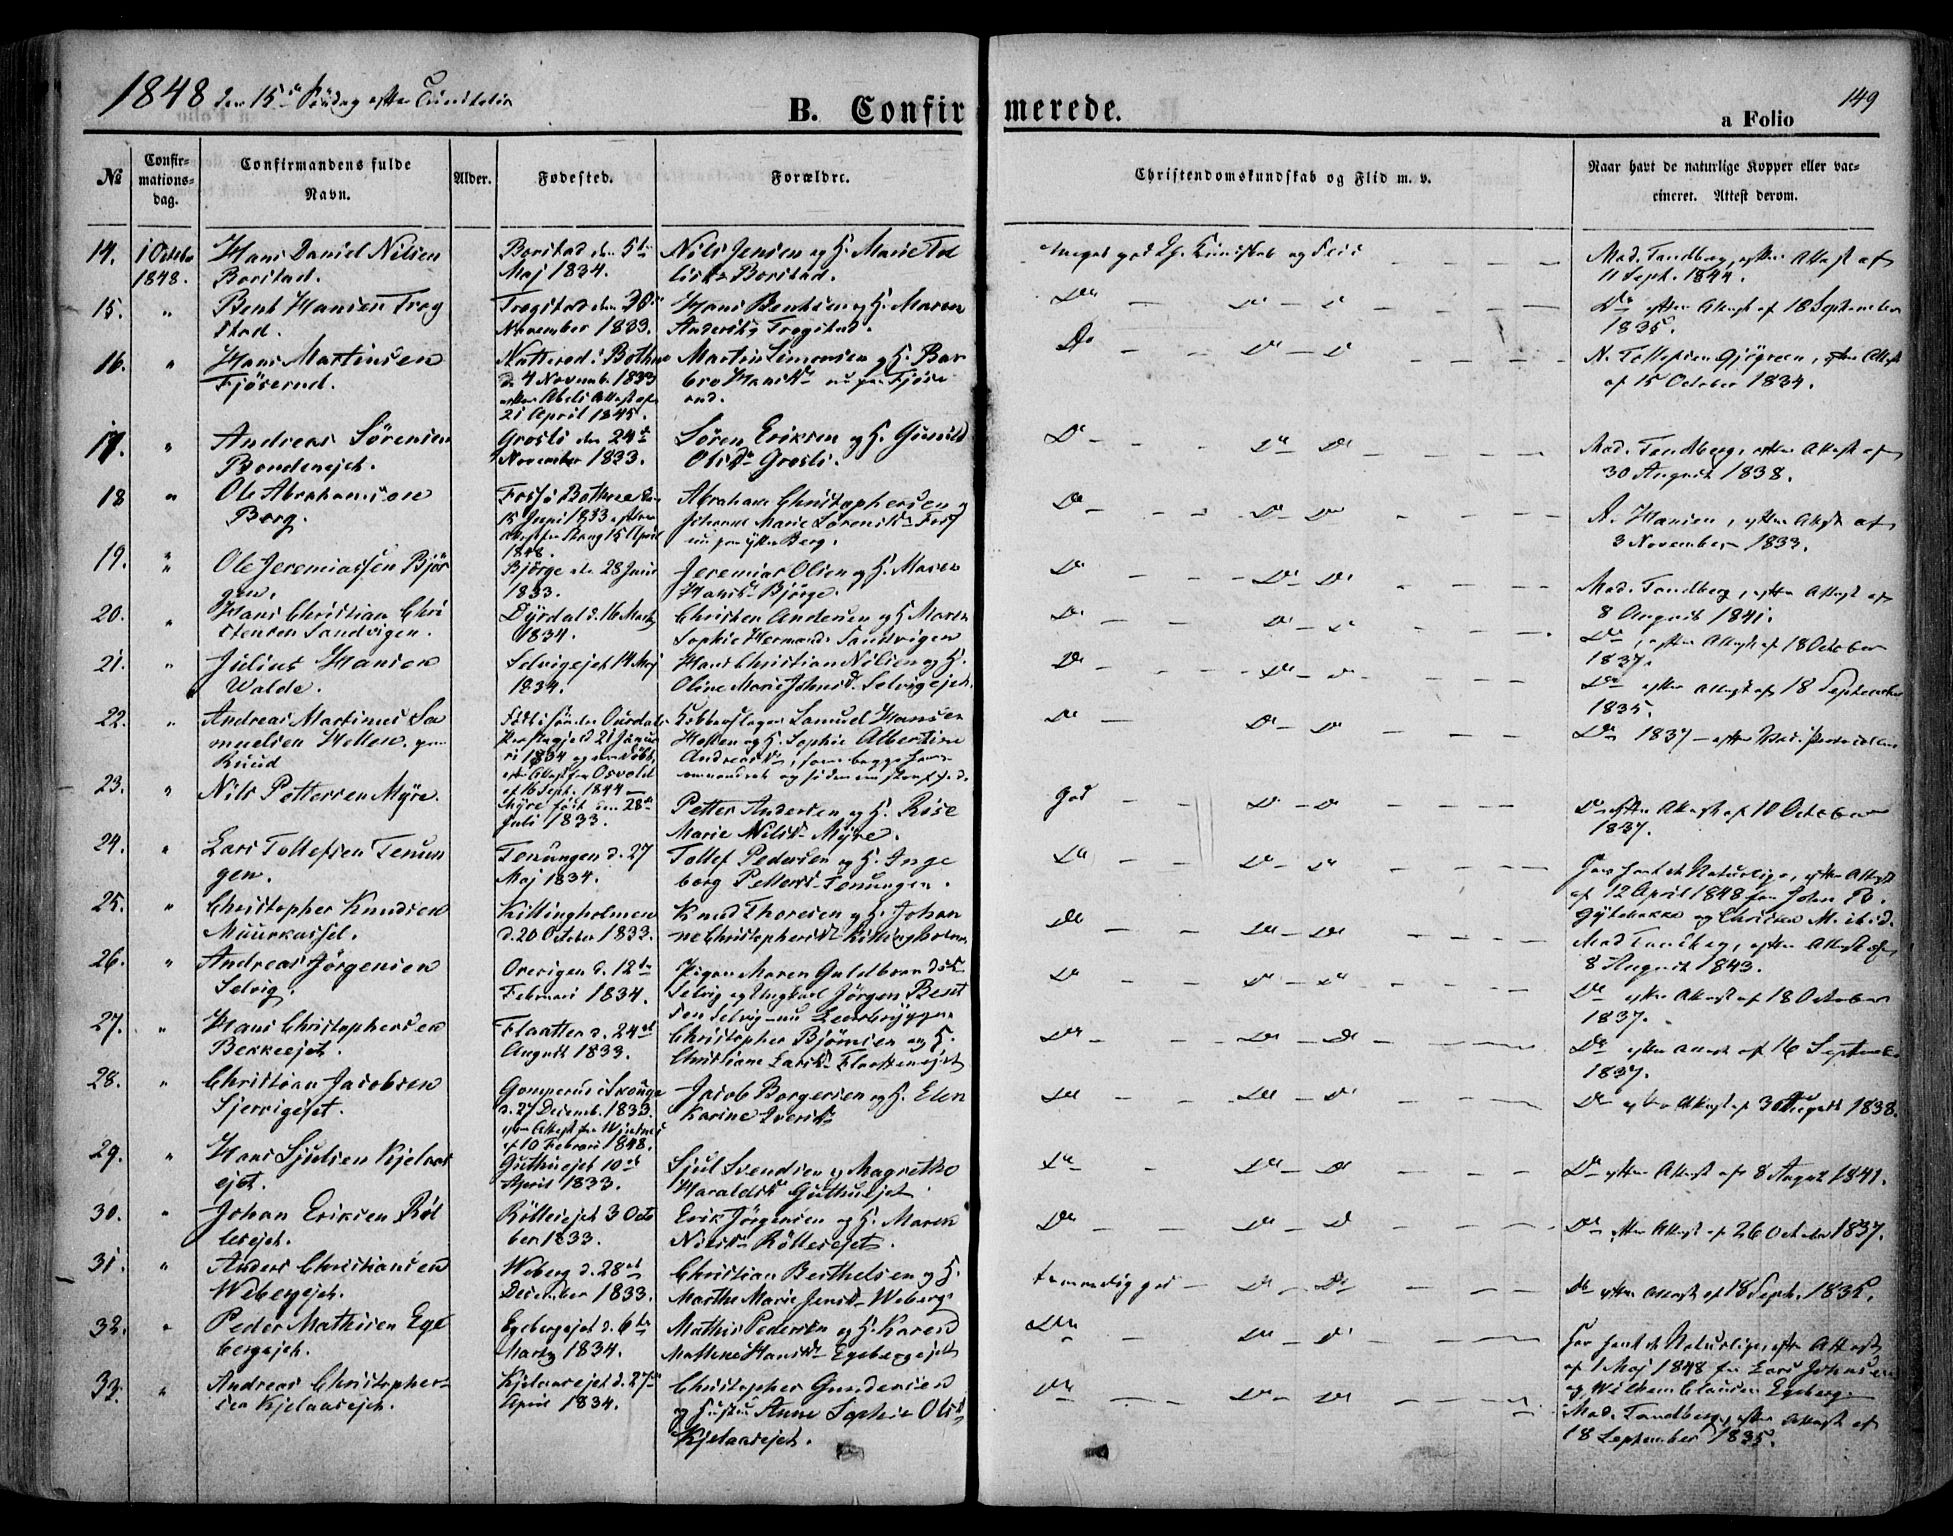 1848 den 15de Søndag efter Trinitatis
B. Confirmerede.
149
a Folio
№
Confirmationsdag.
Confirmandens fulde Navn.
Alder.
Fødested.
Forældre.
Christendomskundskab og Flid m. v.
Naar havt de naturlige Kopper eller vaccineret. Attest derom.
14. 1 Octobr 1848. Hans Daniel Nilsen Borstad. Borstad den 5te Maj 1834. Nils Jensen og H. Marie Borstad. meget god Ch. Kundskab og Flid Mad. Tandberg, efter Attest af 11 Sept. 1844.
15. " Bent Hansen Trogstad. Trogstad den 30 November 1833. Hans Bentsen og H. Maren Trogstad. Do Do Do Do efter Attest af 18 September 1835.
16. " Hans Martinsen Fjøserud. i Bothne d. 4 Novemb. 1833 efter Abels Attest af 21 April 1845. Martin Simonsen og H. Barbro Hansd. nu paa Fjøserud. Do Do Do N. Tollefsen Gjøgreen, efter Attest af 15 October 1834.
17. " Andreas Sørensen Bondenejet. Grosli den 24de November 1833. Søren Eriksen og H. Gunild Olsd. Grosli. Do Do Do Mad. Tandberg, efter Attest af 30 August 1838.
18 " Ole Abrahamsen Berg. Fos i Bothne den 15 Juni 1833 efter Attest fra Stang 15 April 1848. Abraham Christophersen og Marie Sørensd. Fos nu paa ytter Berg. Do Do Do A. Hansen, efter Attest af 3 November 1833.
19. " Ole Jeremiassen Bjørgen. Bjørge den 28 Juni 1833. Jeremias Olsen og H. Maren Hansd. Bjørge. Do Do Do Mad. Tandberg, efter Attest af 8 August 1841.
20. " Hans Christian Christensen Sandvigen. Dyrdal d. 16 Marts 1834. Christen Andersen og H. Maren Sophie Hermansd. Sandvigen Do Do Do Do, efter Attest af 18 October 1837.
21. " Julius Hansen Walde. Selvigejet 14 Maj 1834. Hans Christian Nilsen og H. Oline Marie Johnsd. Selvigejet. Do Do Do Do efter Attest af 18 September 1835.
22. " Andreas Martinus Samuelsen Hellen. Født i søndre Ourdals Præstegjeld 21 Januari 1834 og der døbt, efter Attest fra Osvold af 16 Sept. 1844 Kobberslager Samuel Hansen Hellen og H. Sophie Albertine Andreasd. Do Do Do Do 1837
23. " Nils Pettersen Myre. Myre født den 28de Juli 1833. Petter Andersen og H. Rose Marie Nilsd. Myre. God Do Do Do efter Attest af 10 October 1837.
24. " Lars Tollefsen Tenungen. Tenungen d. 27 Maj 1834. Tollef Pedersen og H. Ingeborg Pettersd. Tenungen. Do Do Do Har havt de Naturlige, efter Attest af 12 April 1848 fra John P. og Christen M. ibid.
25. " Christopher Knudsen Muurkassel. Killingholmen d. 20 October 1833. Knud Thoresen og H. Johanne Christophersd. Killingholmen Do Do Do Mad Tandberg, efter Attest af 8 August 1843.
26. " Andreas Jørgensen Selvig. d. 12te Februari 1834. Pigen Maren Guldbrandsd. Selvig og Ungkarl Jørgen Bentsen Selvig nu Leerbryggen Do Do Do Do efter Attest af 18 October 1837.
27. " Hans Christophersen Bekkeejet. Flaatten d. 24de August 1833. Christopher Bjørnsen og H. Christiane Larsd. Flaattenejet Do Do Do Do efter Attest af 16 September 1837.
28. " Christian Jacobsen i Skouge d. 27 Decemb. 1833. efter Attest fra af 10 Februari 1848. Jacob Borgersen og H. Elen Karine Iversd. Do Do Do Do efter Attest af 30 August 1838.
29. " Hans Sjulsen Kjelaasejet. Guthuejet 10de April 1833. Sjul Svendsen og Magrethe Haraldsd. Guthuejet. Do Do Do Do efter Attest af 8 August 1841.
30. " Johan Eriksen Røllesejet. Røllesejet 3 October 1833. Erik Jørgensen og H. Maren Nilsd. Røllesejet. Do Do Do Do efter Attest af 26 October 1837.
31. " Anders Christiansen Webergejet. Weberg d. 28de December 1833. Christian Berthelsen og H. Marthe Marie Jensd. Weberg temmelig god Do Do Do efter Attest af 18 Sept. 1835.
32. " Peder Mathisen Egebergejet. Egebergejet d. 6te Marts 1834. Mathis Pedersen og H. Karen Mathea Hansd. Egebergejet Do Do Do Har havt de Naturlige, efter Attest af 1 Maj 1848 fra Lars Johnsen og Wilhelm Clausen Egeberg.
33. " Andreas Christophersen Kjelaasejet. Kjelaasejet d. 27de April 1834. Christopher Gundersen og Hustru Anne Sophie Olsd. Kjelaasejet. Do Do Do Mad. Tandberg, efter Attest af 18 September 1835.